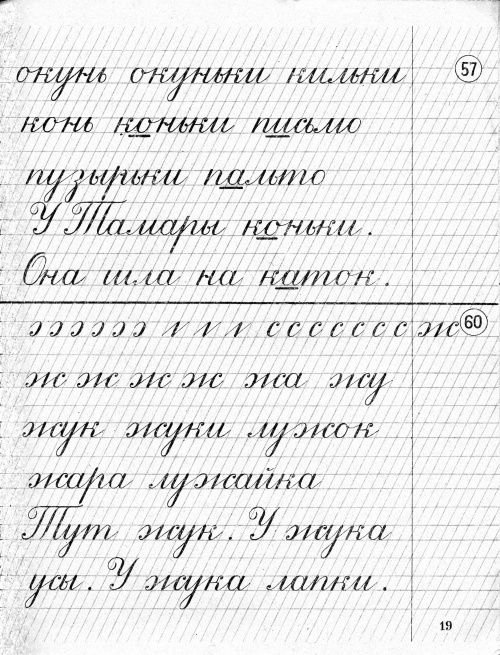 окунь окуньки кильки 57
конь коньки письмо
пузырьки пальто
У Тамары коньки.
Она шла на каток.
с с с с с с с ж 60
ж ж ж ж жа жу
жук жуки лужок
жара лужайка
Тут жук. У жука
усы. У жука лапки.
19